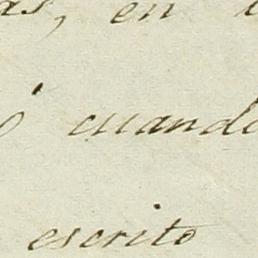 as, en
ó cuando
escrito